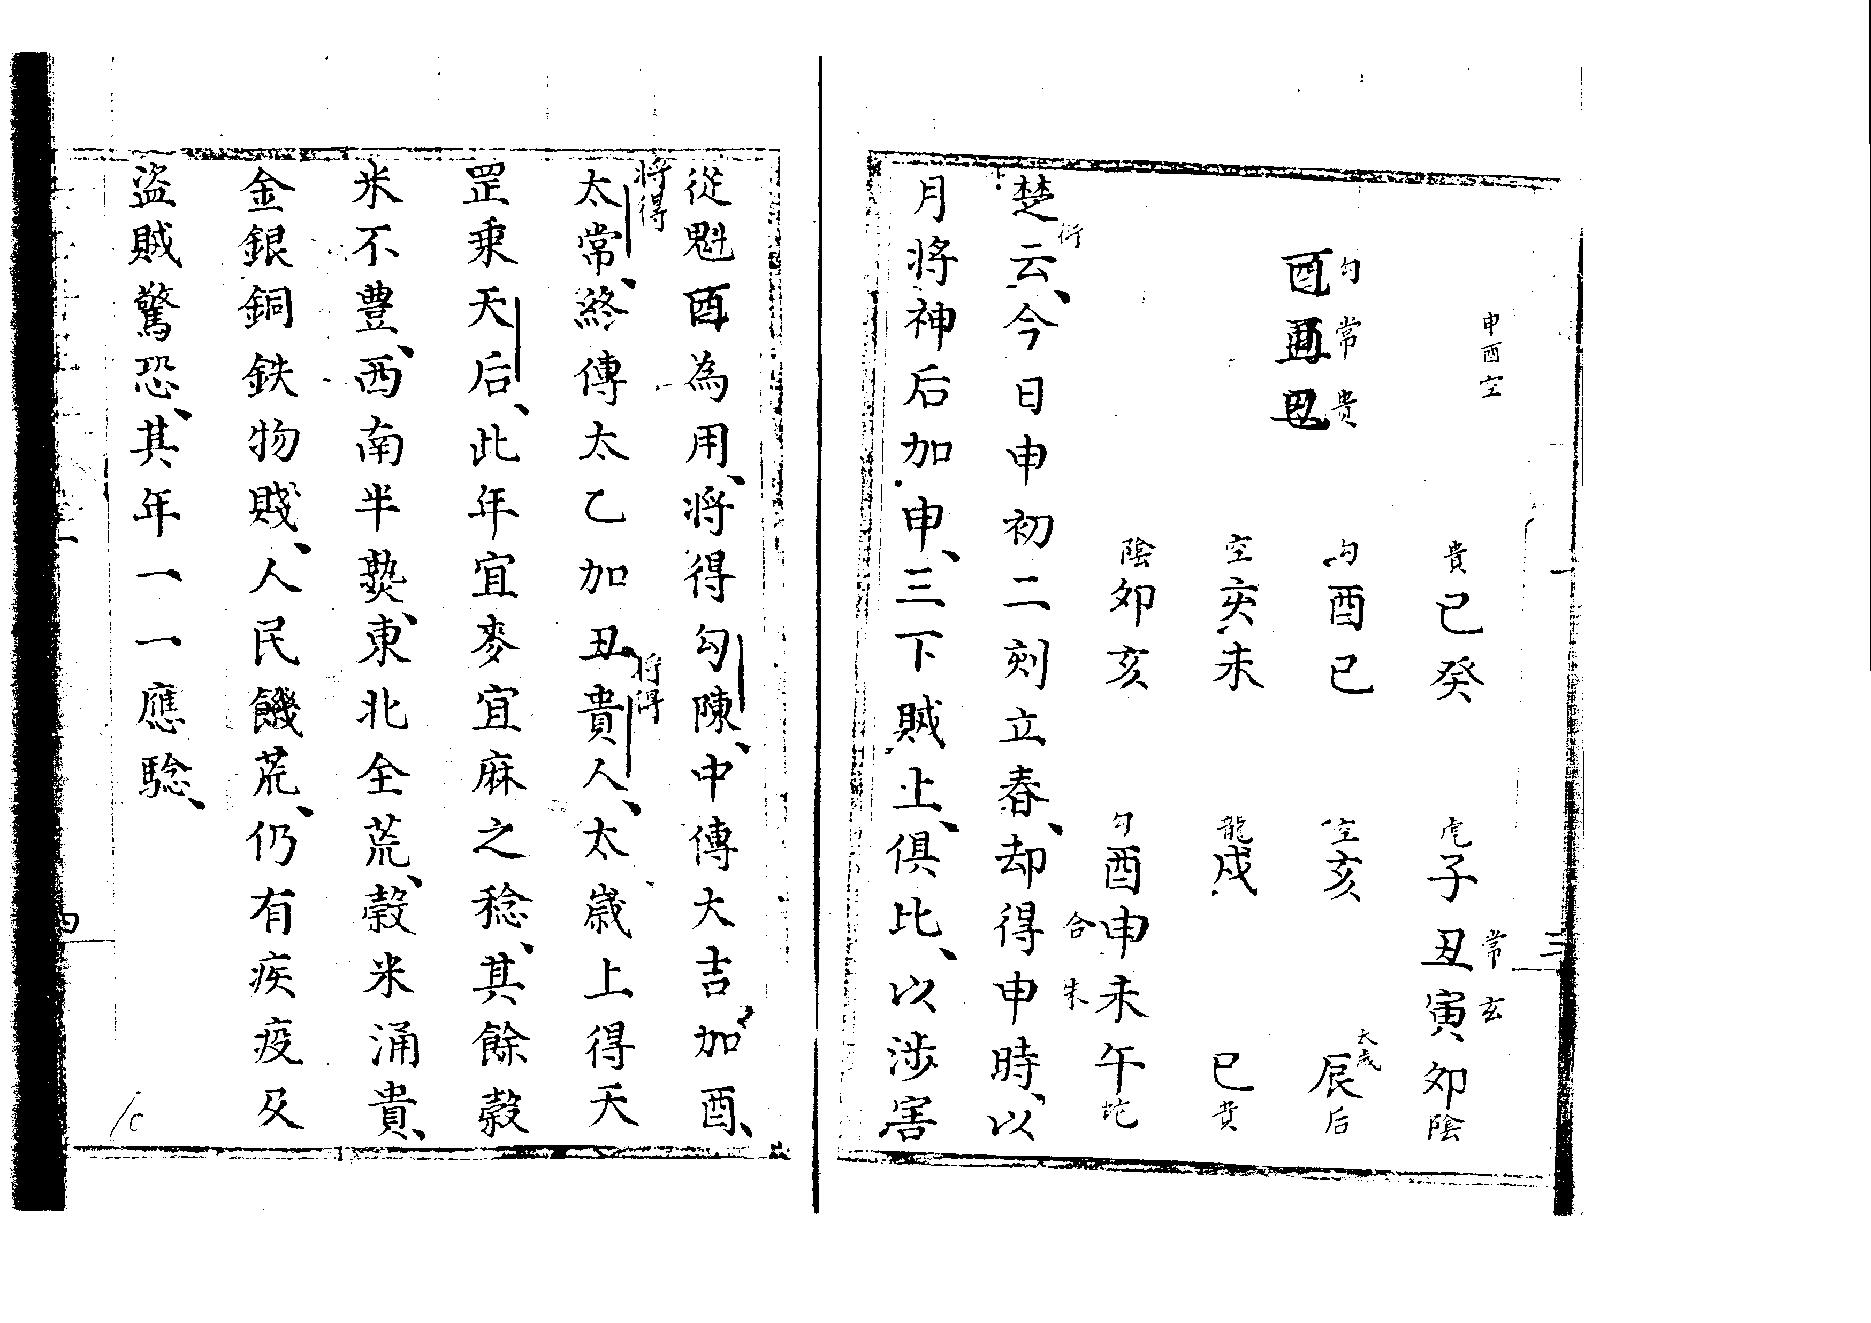 申酉空
勾常貴
酉丑巳
貴巳癸
勾酉巳
空亥未
陰卯亥
虎子丑寅卯陰
常玄
空亥 辰后
太歲
龍戌 巳貴
勾酉申未午蛇
合朱
楚衍云、今日申初二刻立春、却得申時、以
月將神后加申、三下賊上、俱比、以涉害
三
從魁酉為用、將得勾陳、中傳大吉加酉、
將得太常、終傳太乙加丑、將得貴人、太歲上得天
罡乘天后、此年宜麥宜麻之稔、其餘穀
米不豊、西南半熟、東北全荒、穀米涌貴、
金銀銅鉄物賤、人民饑荒、仍有疾疫及
盜賊驚恐、其年一一應騐、